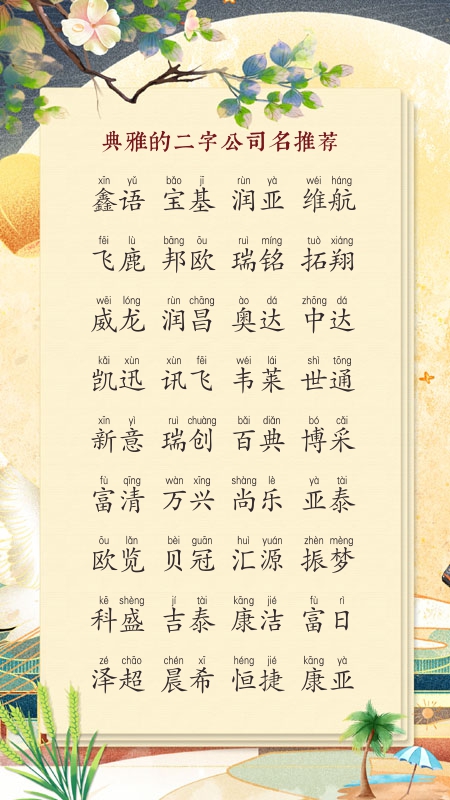 典雅的二字公司名推荐
xīn yǔ bǎo jī rùn yà wéi háng
鑫语 宝基 润亚 维航
fēi lù bāng ōu ruì míng tuò xiáng
飞鹿 邦欧 瑞铭 拓翔
wēi lóng rùn chāng ào dá zhōng dá
威龙 润昌 奥达 中达
kǎi xùn xùn fēi wéi lái shì tōng
凯迅 讯飞 韦莱 世通
xīn yì ruì chuàng bǎi diǎn bó cǎi
新意 瑞创 百典 博采
fù qīng wàn xīng shàng lè yà tài
富清 万兴 尚乐 亚泰
ōu lǎn bèi guān huì yuán zhèn mèng
欧览 贝冠 汇源 振梦
kē shèng jí tài kāng jié fù rì
科盛 吉泰 康洁 富日
zé chāo chén xī héng jié kāng yà
泽超 晨希 恒捷 康亚